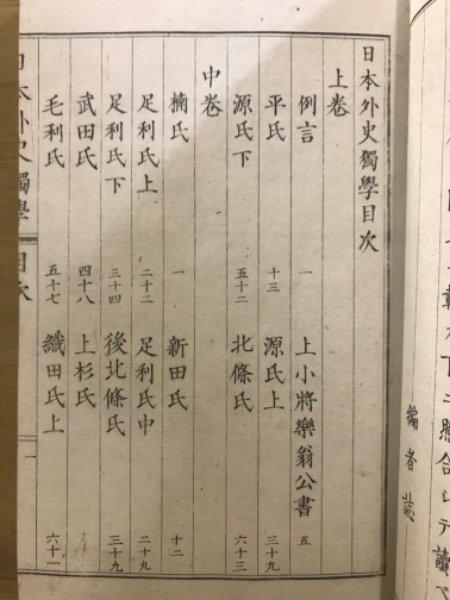 下ニ照合シテ讀
編者誌
日本外史獨學目次
上卷
例言 一 上小將樂翁公書 五
平氏 十三 源氏上 三十九
源氏下 五十二 北條氏 六十三
中卷
楠氏 一 新田氏 十二
足利氏上 二十二 足利氏中 二十九
足利氏下 三十四 後北條氏 三十九
武田氏 四十八 上杉氏
毛利氏 五十七 織田氏上 六十一
日本外史獨學 目次 一